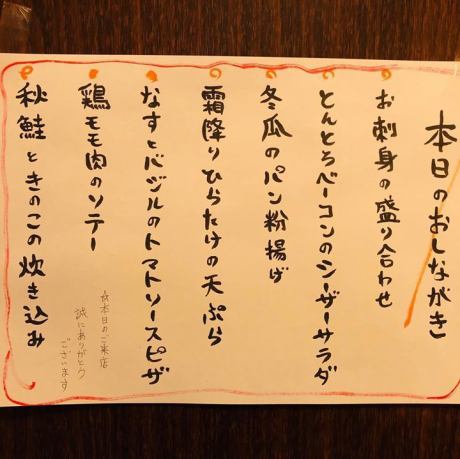 本日のおしながき
お刺身の盛り合わせ
とんとろベーコンのシーザーサラダ
冬瓜のパン粉揚げ
霜降りひらたけの天ぷら
なすとバジルのトマトソースピザ
鶏モモ肉のソテー
秋鮭ときのこの炊き込み
☆本日のご来店
誠にありがとう
ございます